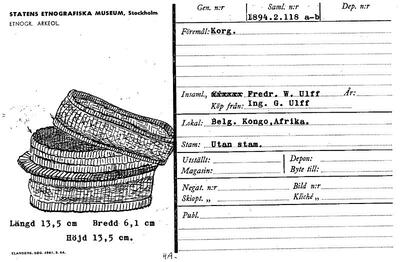 STATENS ETNOGRAFISKA MUSEUM, Stockholm
ETNOGR. ARKEOL.
Längd 13,5 cm Bredd 6,1 cm
Höjd 13,5 cm.
Gen. n:r Saml. n:r Dep. n:r
1894.2.118 a-b
Föremål: Korg.
Insaml., Fredr. W. Ulff År:
Köp från: Ing. G. Ulff
Lokal: Belg. Kongo, Afrika.
Stam: Utan stam.
Utställt: Depon:
Magasin: Bytt till:
Negat. n:r Bild n:r
Skiopt. „ Kliché „
Publ.